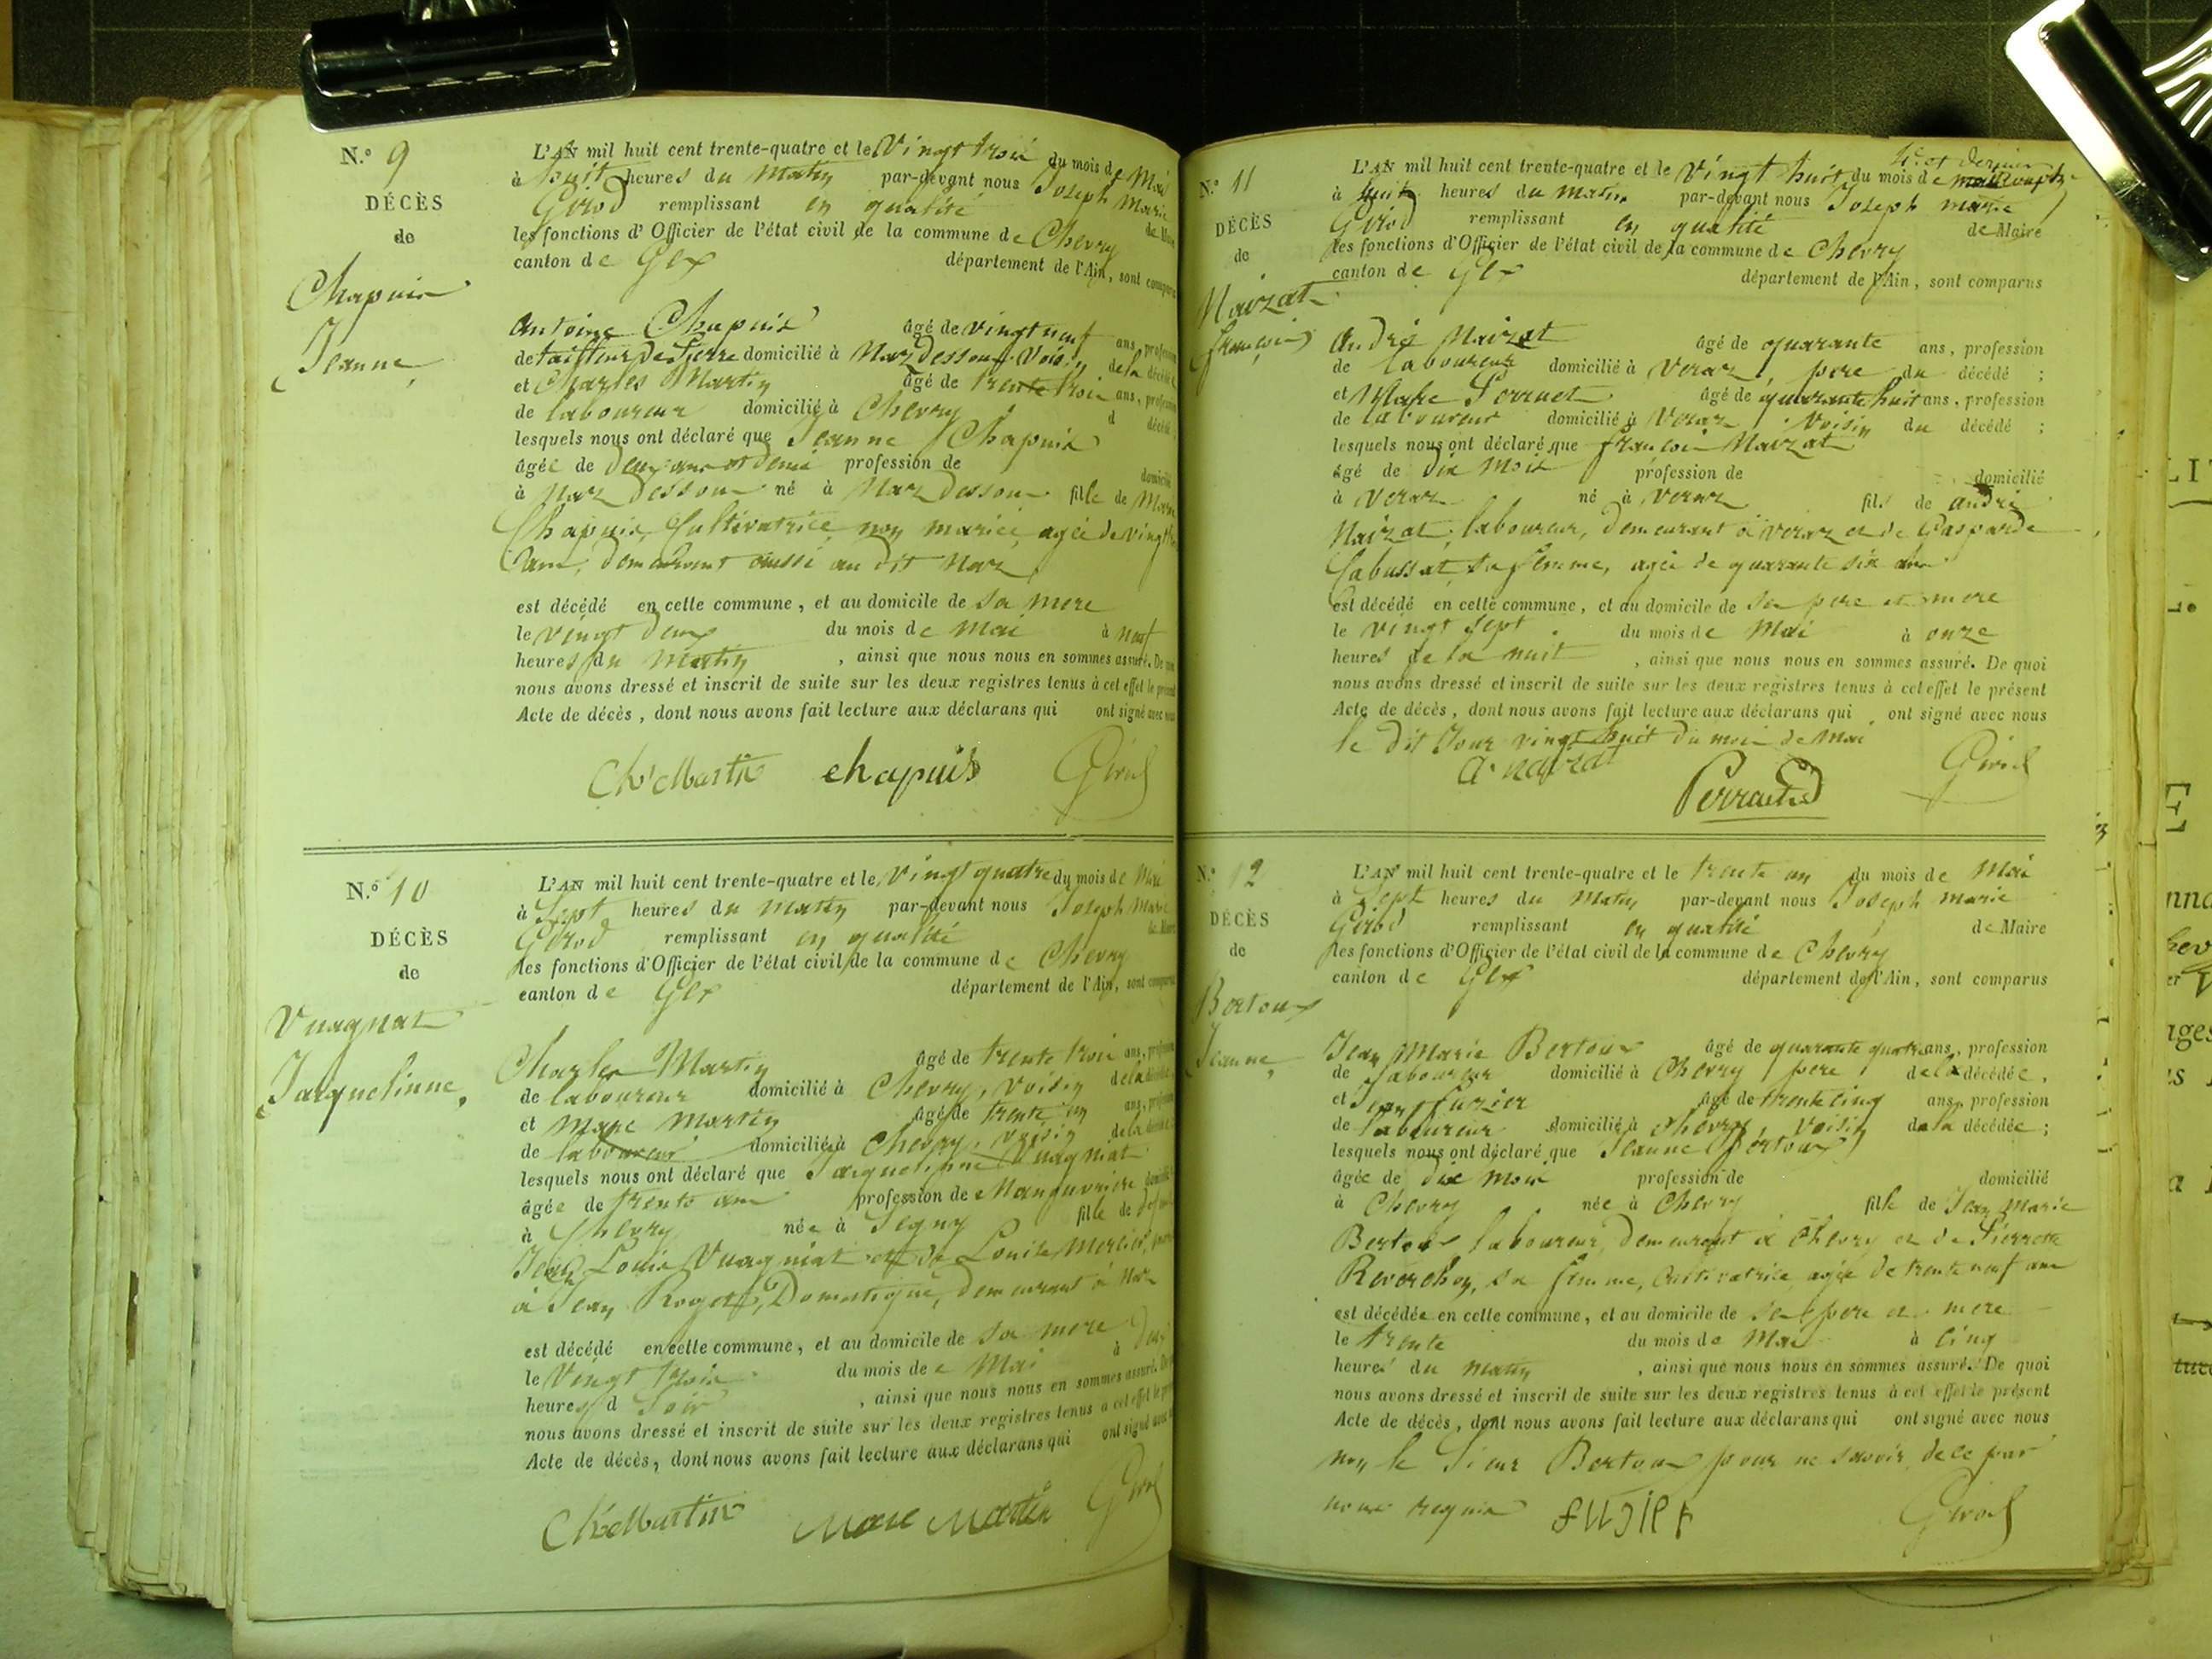 N.° 9
DÉCÈS
de
Chapuis
Jeanne
L'AN mil huit cent trente-quatre et le Vingt trois du mois de Mai
à huit heures du Matin par-devant nous Joseph Marie
Girod remplissant en qualité de Maire
les fonctions d'Officier de l'état civil de la commune de Chevry
canton de Gex département de l'Ain, sont comparus
Antoine Chapuis âgé de vingt neuf ans, profession
de tailleur de Pierre domicilié à Naz dessous Voisin de la décédée
et Charles Martin âgé de trente trois ans, profession
de laboureur domicilié à Chevry d décédé
lesquels nous ont déclaré que Jeanne Chapuis
âgée de deux ans et demi profession de domicilié
à Naz Dessous né à Naz dessous fille de Marie
Chapuis, Cultivatrice non mariée, agée de vingt
ans, demeurant aussi au dit Naz
est décédé en cette commune, et au domicile de sa mere
le vingt deux du mois de mai à neuf
heures du matin, ainsi que nous nous en sommes assuré. De quoi
nous avons dressé et inscrit de suite sur les deux registres tenus à cet effet le présent
Acte de décès, dont nous avons fait lecture aux déclarans qui ont signé avec nous
Ch Martin chapuis Girod
N.° 10
DÉCÈS
de
Vuagnat
Jaquelinne
L'AN mil huit cent trente-quatre et le Vingt quatre du mois de Mai
à Sept heures du matin par-devant nous Joseph Marie
Girod remplissant en qualité de Maire
les fonctions d'Officier de l'état civil de la commune de Chevry
canton de Gex département de l'Ain, sont comparus
Charles Martin âgé de trente trois ans, profession
de laboureur domicilié à Chevry, voisin de la décédée
et Marc Martin âgé de trente un ans, profession
de laboureur domicilié à Chevry, voisin de la décédée
lesquels nous ont déclaré que Jaquelinne Vuagniat
âgée de trente ans profession de Manouvriere domicilié
à Chevry née à Segny fille de
Jean Louis Vuagniat et de Louise Mercier,
à Jean Roget, Domestique, demeurant à Naz
est décédé en cette commune, et au domicile de sa mere à
le Vingt trois du mois de Mai
heures d soir, ainsi que nous nous en sommes assuré. De
nous avons dressé et inscrit de suite sur les deux registres tenus à cet effet le
Acte de décès, dont nous avons fait lecture aux déclarans qui ont signé avec
Ch Martin Marc Martin Girod
N.° 11
DÉCÈS
de
Naizat
françois
4e et dernier
L'AN mil huit cent trente-quatre et le Vingt huit du mois de
à huit heures du matin par-devant nous Joseph marie
Girod remplissant en qualité de Maire
les fonctions d'Officier de l'état civil de la commune de Chevry
canton de Gex département de l'Ain, sont comparus
André Naizat âgé de quarante ans, profession
de laboureur domicilié à Veraz, pere du décédé;
et Marc Perruet âgé de quarante huit ans, profession
de laboureur domicilié à Veraz, Voisin du décédé;
lesquels nous ont déclaré que françois Naizat
âgé de dix Mois profession de domicilié
à Veraz né à Veraz fils de andré
Naizat, laboureur, demeurant à Veraz et de Gasparde
Cabussat, sa femme, agée de quarante six ans
est décédé en cette commune, et au domicile de ses pere et mere
le vingt sept du mois de Mai à onze
heures de la nuit, ainsi que nous nous en sommes assuré. De quoi
nous avons dressé et inscrit de suite sur les deux registres tenus à cet effet le présent
Acte de décès, dont nous avons fait lecture aux déclarans qui ont signé avec nous
le dit Jour vingt huit du mois de Mai
A. naizat Girod
N.° 12
DÉCÈS
de
Bertoux
Jeanne
L'AN mil huit cent trente-quatre et le trente un du mois de Mai
à Sept heures du Matin par-devant nous Joseph marie
Girod remplissant en qualité de Maire
les fonctions d'Officier de l'état civil de la commune de Chevry
canton de Gex département de l'Ain, sont comparus
Jean Marie Bertoux âgé de quarante quatre ans, profession
de laboureur domicilié à Chevry pere de la décédée.
et Jean fusier âgé de trente cinq ans, profession
de laboureur domicilié à chevry, voisin de la décédée;
lesquels nous ont déclaré que Jeanne Bertoux
âgée de dix Mois profession de domicilié
à Chevry née à Chevry fille de Jean Marie
Bertoux laboureur, demeurant à Chevry et de Pierrette
Reverchon, sa femme, Cultivatrice, agée de trente neuf ans
est décédée en cette commune, et au domicile de ses pere et mere
le trente du mois de Mai à Cinq
heures du matin, ainsi que nous nous en sommes assuré. De quoi
nous avons dressé et inscrit de suite sur les deux registres tenus à cet effet le présent
Acte de décès, dont nous avons fait lecture aux déclarans qui ont signé avec nous
non le Sieur Bertoux pour ne savoir de ce par
nous requis fusier Girod